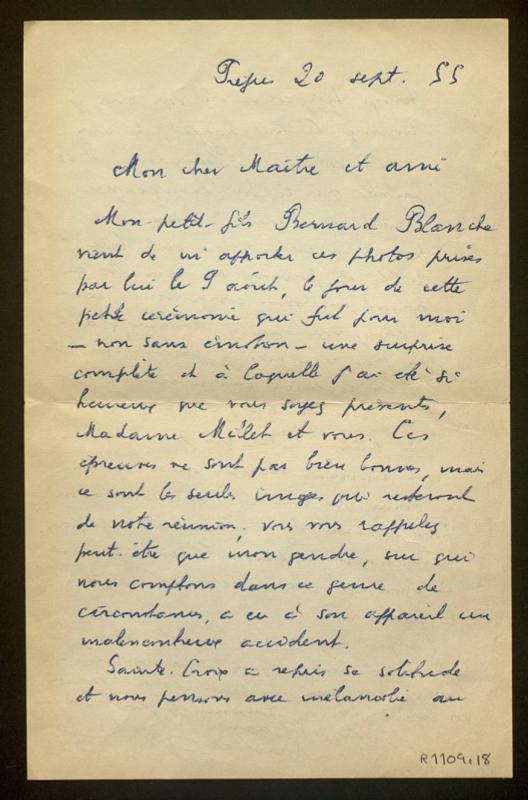 20 sept. 55
Mon cher Maître et ami
Mon petit-fils Bernard Blanche
vient de m'apporter ces photos prises
par lui le 9 août, le jour de cette
petite cérémonie qui fut pour moi
– non sans émotion – une surprise
complète et à laquelle j'ai été si
heureux que vous soyez présents,
Madame Millet et vous. Ces
épreuves ne sont pas bien bonnes, mais
ce sont les seules images qui resteront
de notre réunion, vous vous rappelez
peut-être que mon gendre, sur qui
nous comptons dans ce genre de
circonstances, a eu à son appareil un
malencontreux accident.
Sainte-Croix a repris sa solitude
et nous pensons avec mélancolie au
R1109,18